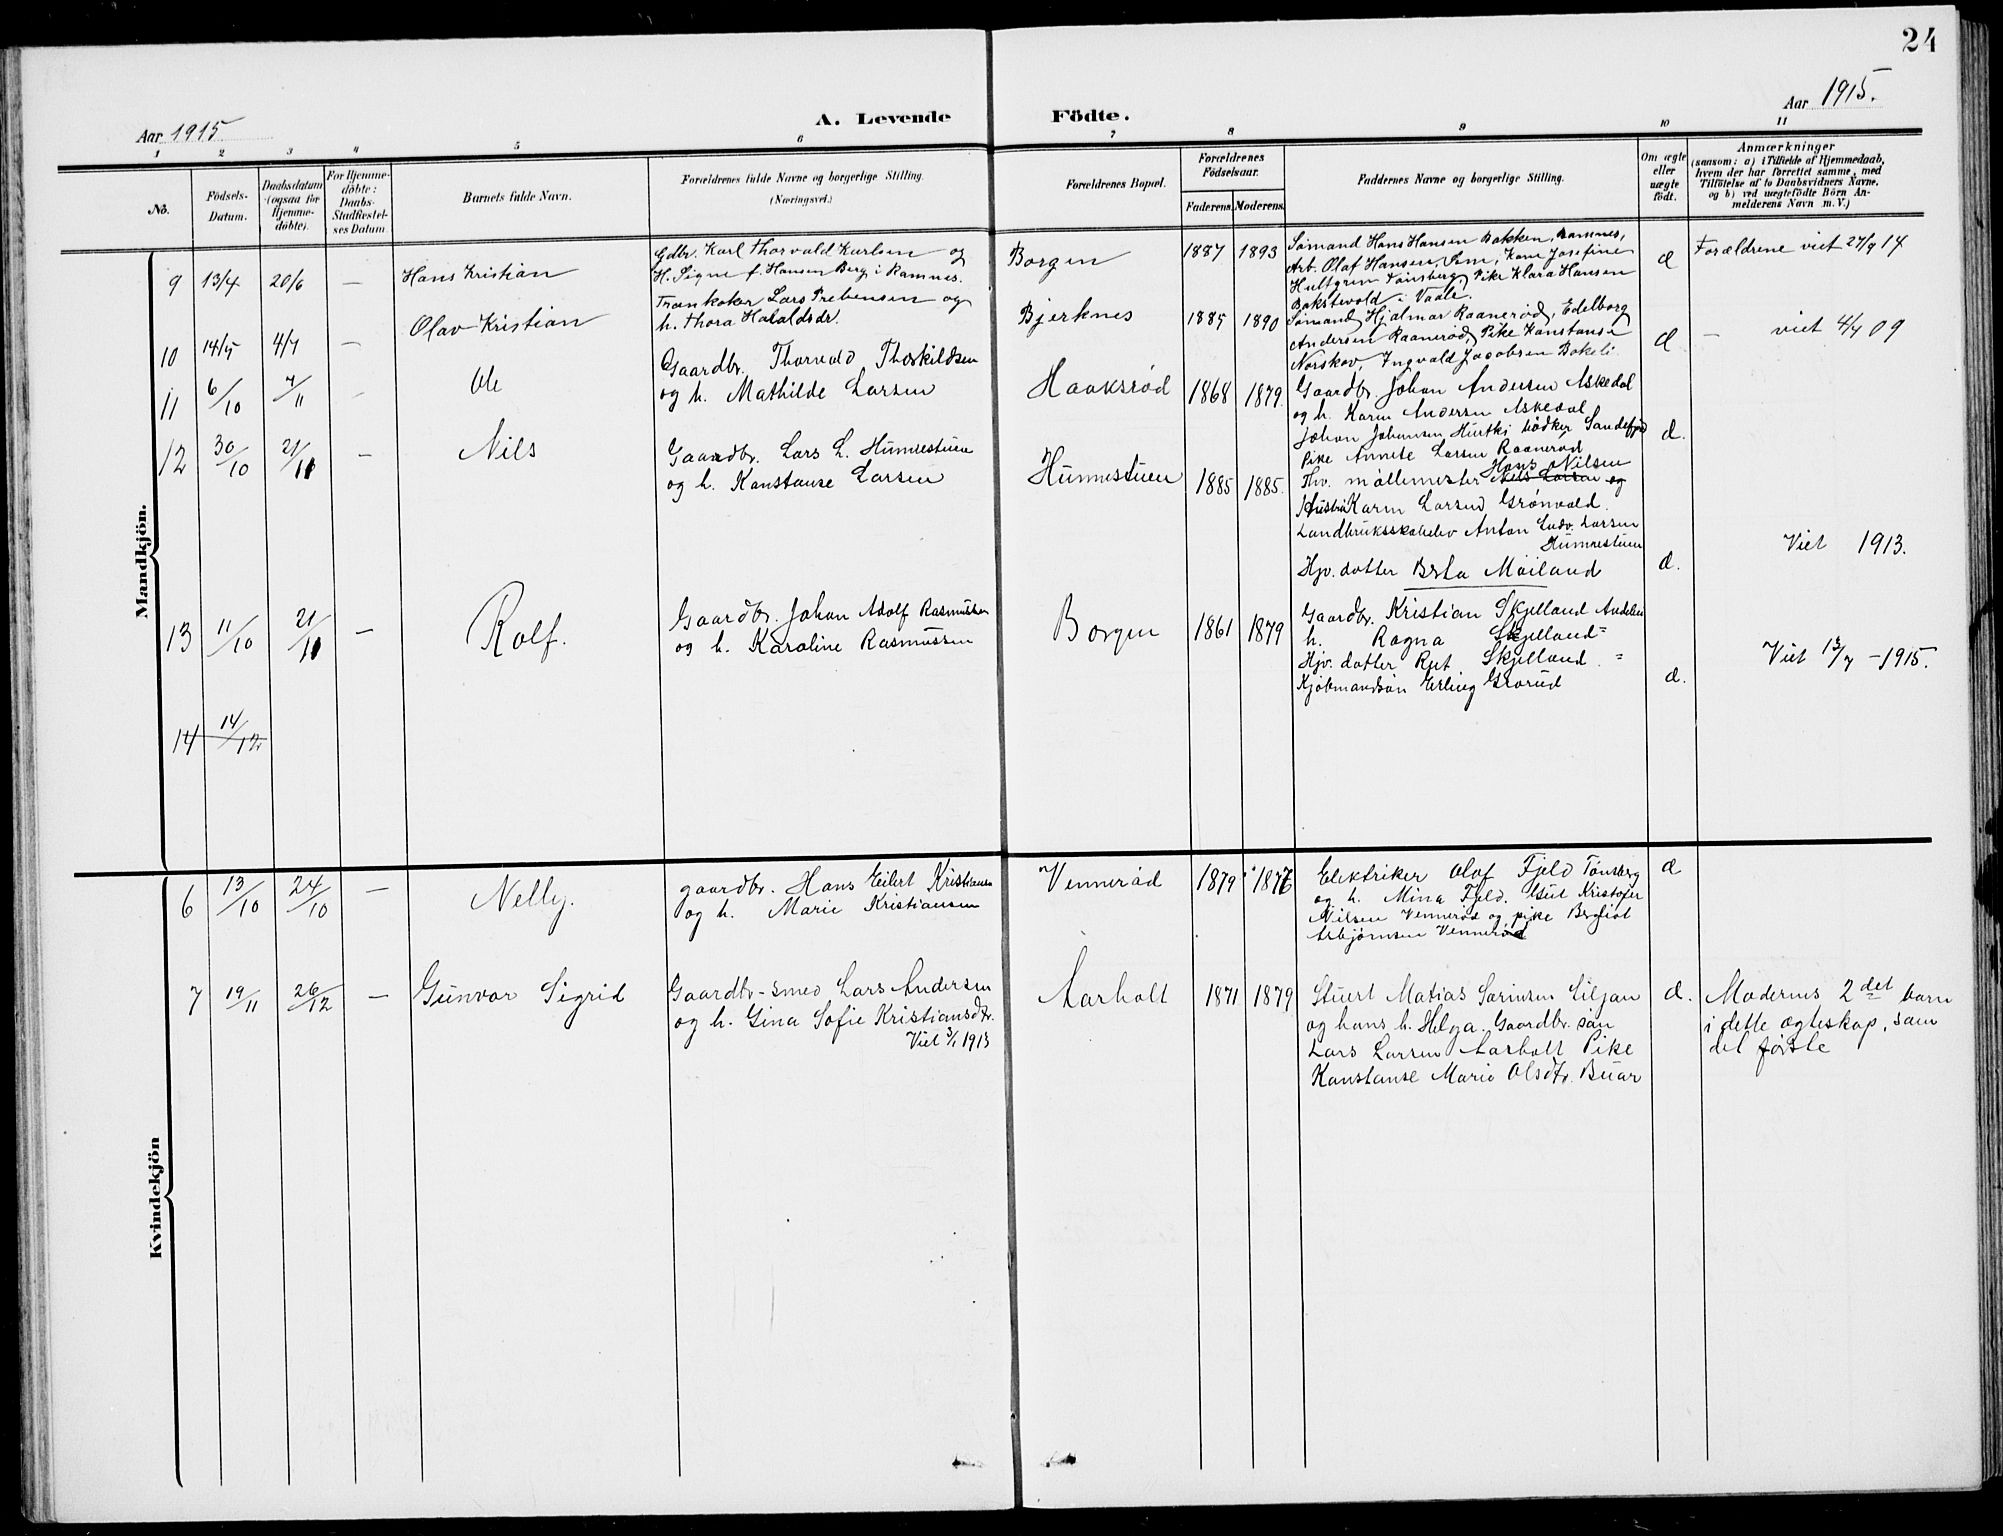 24
Aar 1915
A. Levende Födte.
Aar 1915.
1 2 3 4 5 6 7 8 9 10 11
No.
Födsels-
Datum.
Daabsdatum
(ogsaa for
Hjemme-
döbte).
For Hjemme-
döbte:
Daabs-
Stadfæstel-
ses Datum
Barnets fulde Navn.
Forældrenes fulde Navne og borgerlige Stilling.
(Næringsvei.)
Forældrenes Bopæl.
Forældrenes
Födselsaar.
Faderens. Moderens.
Faddernes Navne og borgerlige Stilling.
Om ægte
eller
uægte
födt.
Anmærkninger
(saasom: a) i Tilfælde af Hjemmedaab,
hvem der har forrettet samme, med
Tilföielse af to Daabsvidners Navne,
og b) ved uægtefödte Börn An-
melderens Navn m. V.)
Mandkjön.
9 13/4 20/6 — Hans Kristian
Gdbr. Karl Thorvald Karlsen og
H. Signe f. Hansen Berg i Ramnes.
Borgen 1887 1893
Sømand Hans Hansen Bakken, Ramnes,
Arb. Olaf Hansen, Sem, Kone Josefine
Hultgren Tønsberg, Pike Klara Hansen
Bakstevold i Vaale.
Forældrene viet 27/9 14
10 14/5 4/7 — Olav Kristian
Trankoker Lars Prebensen og
h. Thora Haraldsdr.
Bjerknes 1885 1890
Sømand Hjalmar Raanerød, Edelborg
Andersen Raanerød, Pike Konstanse
Norskov, Ingvald Jacobsen Bakeli
— viet 4/7 09
11 6/10 7/11 Ole
Gaardbr. Thorvald Thorkildsen
og h. Mathilde Larsen
Haaksrød 1868 1879.
Gaardbr. Johan Andersen Askedal
og h. Karen Andersen Askedal
Johan Johansen bödker Sandefjord
Pike Annete Larsen Raanerød
12 30/10 21/11 — Nils
Gaardbr. Lars L. Hunnestuen
og h. Konstanse Larsen
Hunnestuen 1885 1885.
Hans Nilsen
Fhv. möllemester Nils Larsen og
Hustru Karen Larsen Grönvold.
Landbruksskoleelev Anton Ludv. Larsen
Hunnestuen
Hjv. datter Berta Moiland
Viet 1913.
13 11/10 21/11 — Rolf.
Gaardbr. Johan Adolf Rasmussen
og h. Karoline Rasmussen
Borgen 1861 1879
Gaardbr. Kristian Skjelland Andebu
h. Ragna Skjelland =
Hjv. datter Rut Skjelland =
Kjöbmandsön Erling Grorud
Viet 13/7 - 1915.
14 14/12
Kvindekjön
6 13/10 24/10 — Nelly.
gaardbr. Hans Eilert Kristiansen
og h. Marie Kristiansen
Vennerød 1879 1876
Elektriker Olaf Fjeld Tönsberg
og h. Mina Fjeld. Gut Kristofer
Nilsen Vennerød og pike Bergliot
Asbjörnsen Vennerød
7 19/11 26/12 — Gunvor Sigrid
Gaardbr - smed Lars Andersen
og h. Gina Sofie Kristiansdtr.
Viet 3/1 1913
Aarholt 1871 1879
Stuert Matias Sörensen Liljan
og hans h. Helga. Gaardbr. sön
Lars Larsen Aarholt Pike
Konstanse Marie Olsdtr. Buar
Moderens 2det barn
i dette ægteskap, som
det förste